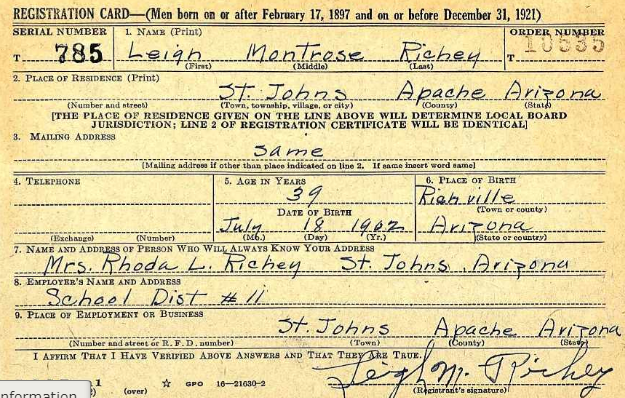 REGISTRATION CARD—(Men born on or after February 17, 1897 and on or before December 31, 1921)
SERIAL NUMBER 1. NAME (Print) ORDER NUMBER
T 785 Leigh Montrose Richey T 10535
(First) (Middle) (Last)
2. PLACE OF RESIDENCE (Print)
St. Johns Apache Arizona
(Number and street) (Town, township, village, or city) (County) (State)
[THE PLACE OF RESIDENCE GIVEN ON THE LINE ABOVE WILL DETERMINE LOCAL BOARD
JURISDICTION; LINE 2 OF REGISTRATION CERTIFICATE WILL BE IDENTICAL]
3. MAILING ADDRESS
same
[Mailing address if other than place indicated on line 2. If same insert word same]
4. TELEPHONE 5. AGE IN YEARS 6. PLACE OF BIRTH
39 Richville
DATE OF BIRTH (Town or county)
July 18 1902 Arizona
(Exchange) (Number) (Mo.) (Day) (Yr.) (State or country)
7. NAME AND ADDRESS OF PERSON WHO WILL ALWAYS KNOW YOUR ADDRESS
Mrs. Rhoda L. Richey St. Johns, Arizona
8. EMPLOYER'S NAME AND ADDRESS
School Dist #11
9. PLACE OF EMPLOYMENT OR BUSINESS
St. Johns Apache Arizona
(Number and street or R. F. D. number) (Town) (County) (State)
I AFFIRM THAT I HAVE VERIFIED ABOVE ANSWERS AND THAT THEY ARE TRUE.
Leigh M. Richey
1 (over) ☆ GPO 16—21630-2 (Registrant's signature)
nformation